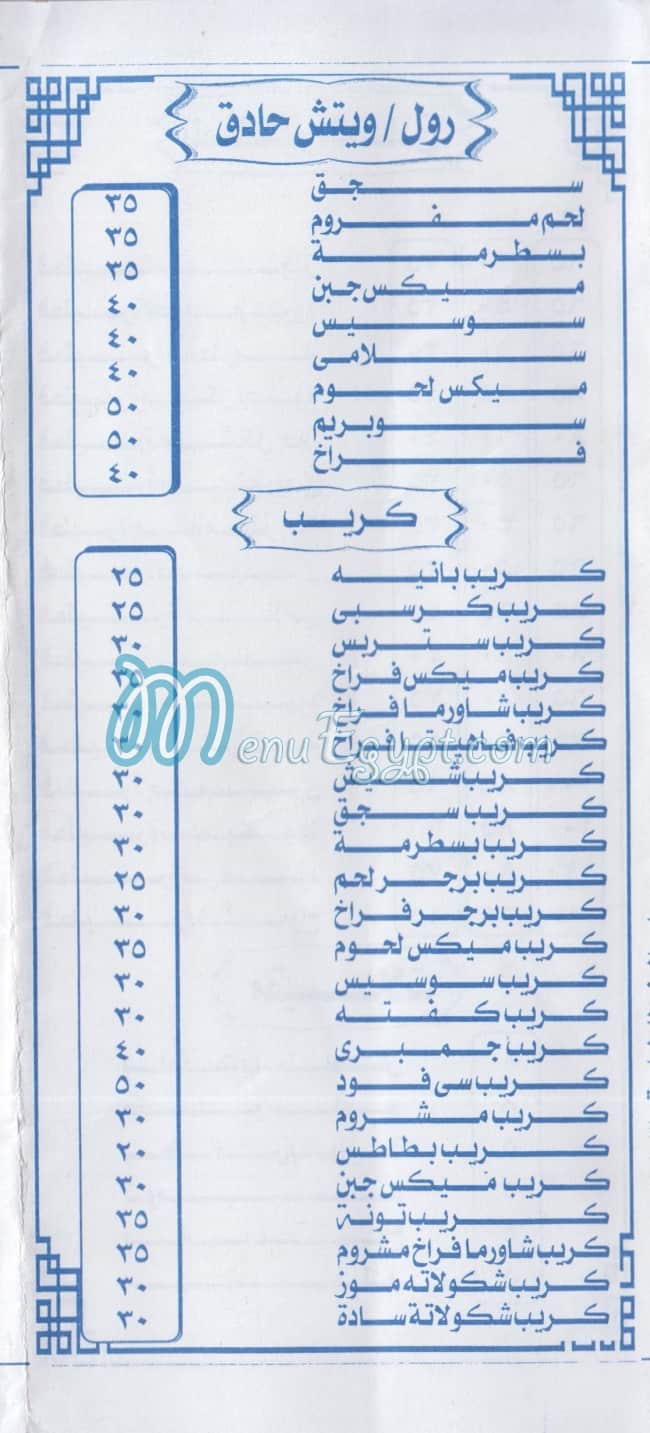 رول / ويتش حادق
سجق ٣٥
لحم مفروم ٣٥
بسطرمة ٣٥
ميكس جبن ٤٠
سوسيس ٤٠
سلامى ٤٠
ميكس لحوم ٥٠
سوبريم ٥٠
فراخ ٤٠
كريب
كريب بانيه ٢٥
كريب كرسبى ٢٥
كريب ستربس ٣٠
كريب ميكس فراخ ٣٥
كريب شاورما فراخ
كريب فاهيتا فراخ
كريب شيش ٣٠
كريب سجق ٣٠
كريب بسطرمة ٣٠
كريب برجر لحم ٢٥
كريب برجر فراخ ٣٠
كريب ميكس لحوم ٣٥
كريب سوسيس ٣٠
كريب كفته ٣٠
كريب جمبرى ٤٠
كريب سى فود ٥٠
كريب مشروم ٣٠
كريب بطاطس ٢٠
كريب ميكس جبن ٣٠
كريب تونة ٣٥
كريب شاورما فراخ مشروم ٣٥
كريب شكولاته موز ٣٠
كريب شكولاتة سادة ٣٠
MenuEgypt.com